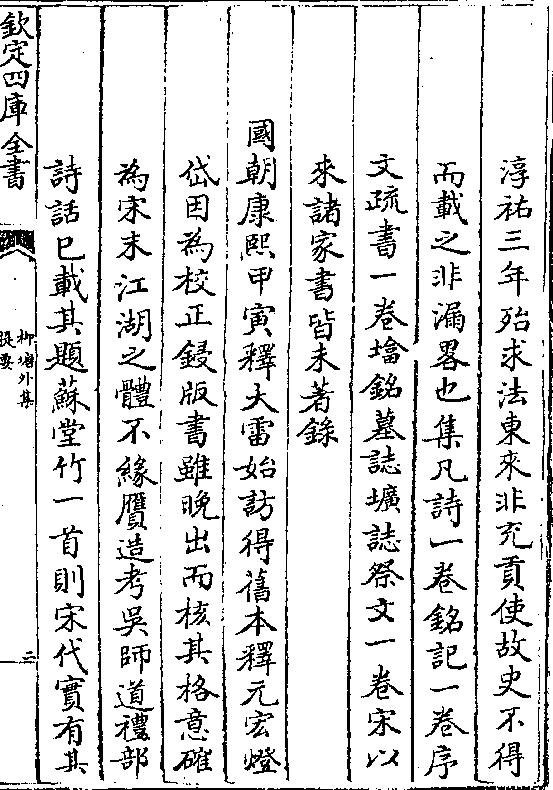 淳祐三年殆求法東來非充貢使故史不得
而載之非漏畧也集凡詩一卷銘記一卷序
文疏書一卷墖銘墓誌壙誌祭文一卷宋以
來諸家書皆未著錄
國朝康熙甲寅釋大雷始訪得舊本釋元宏燈
岱因為校正鋟版書雖晚出而核其格意確
為宋末江湖之體不緣贋造考吳師道禮部
詩話已載其題蘇堂竹一首則宋代實有其
欽定四庫全書
柳塘外集
提要
二